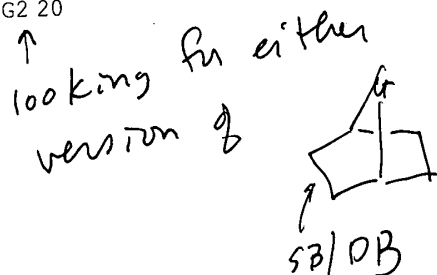 G2 20
looking for either
version of
G
SB/DB